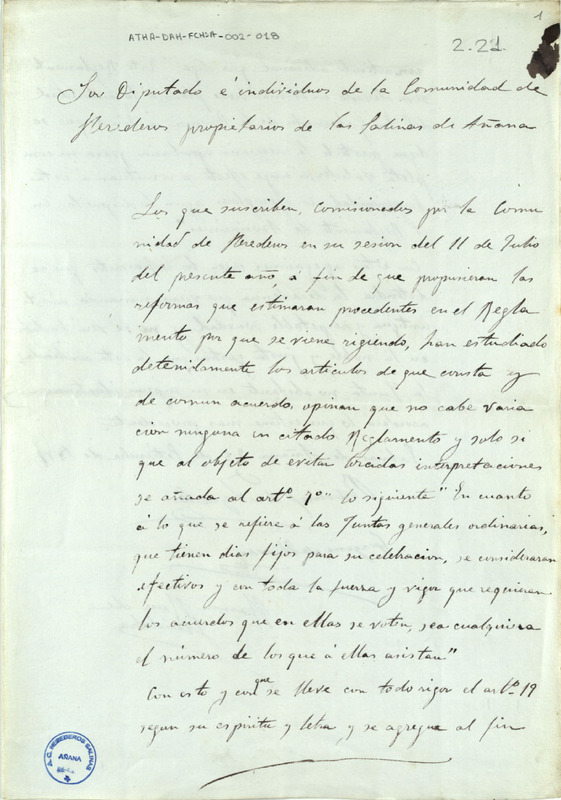 1
ATHA-DAH-FCHSA-002-018
2.21.
Sor Diputado é individuos de la Comunidad de
Herederos propietarios de las Salinas de Añana
Los que suscriben, comisionados por la Comu
nidad de Herederos en su sesion del 11 de Julio
del presente año, á fin de que propusieran las
reformas que estimaran procedentes en el Regla
mento por que se viene rigiendo, han estudiado
detenidamente los articulos de que consta y
de comun acuerdo, opinan que no cabe varia
cion ninguna en citado Reglamento y solo si
que al objeto de evitar torcidas interpretaciones
se añada al artº 7º lo siguiente " En cuanto
á lo que se refiere á las Juntas generales ordinarias,
que tienen dias fijos para su celebracion, se consideraran
efectivos y con toda la fuerza y vigor que requieren
los acuerdos que en ellas se voten, sea cualquiera
el número de los que á ellas asistan"
Con esto y con que se lleve con todo rigor el artº 19
segun su espiritu y letra y se agregue al fin
A.C. HEREDEROS SALINAS
AÑANA